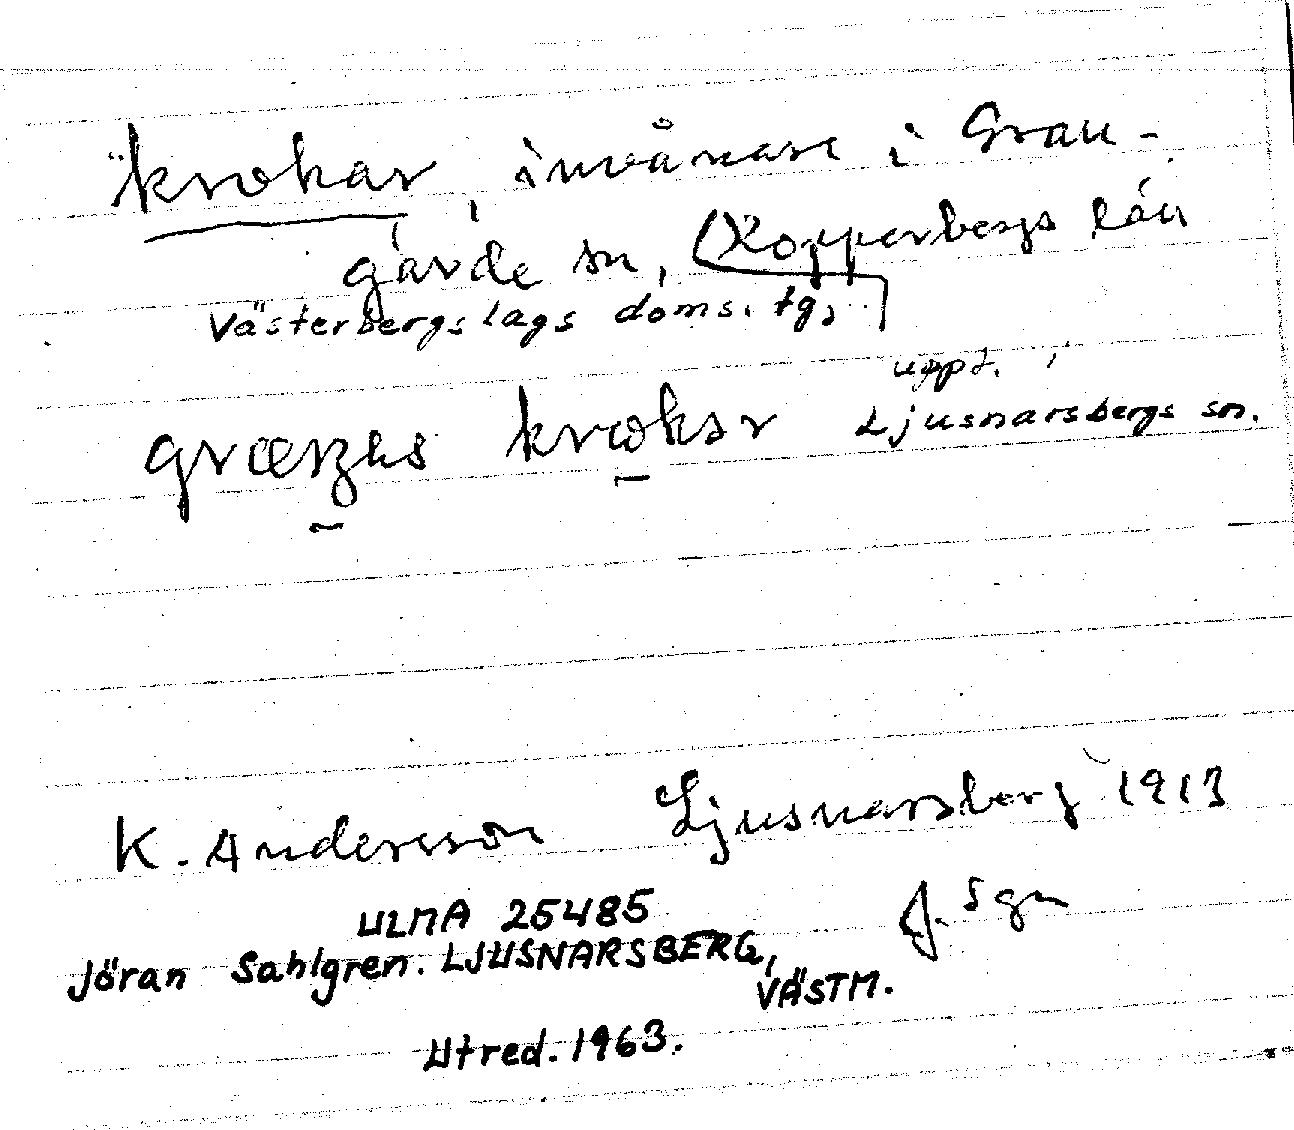 "krokar, invånare i Gran-
gärde sn, (Kopparbergs län
Västerbergslags doms. tg,
uppt. i
Ljusnarsbergs sn.
K. Andersson Ljusnarsberg 1913
J. Sgn
ULMA 25485
Jöran Sahlgren. LJUSNARSBERG,
VÄSTM.
Utred. 1963.